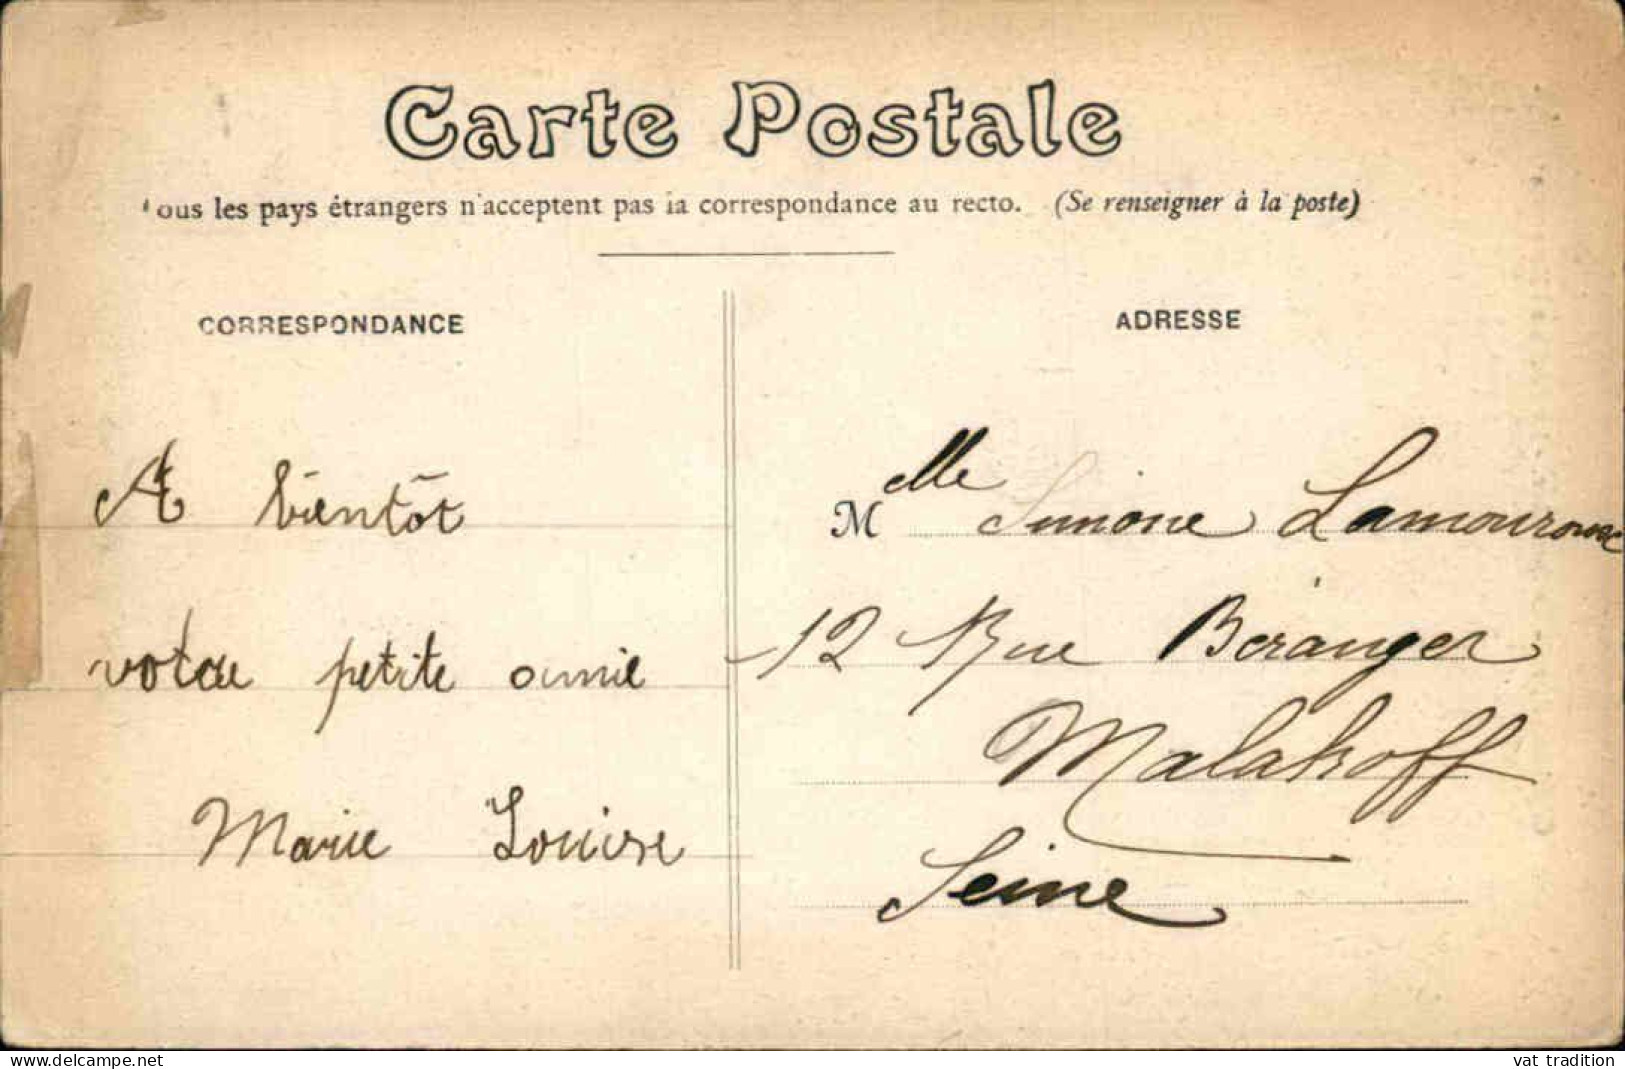 Carte Postale
Tous les pays étrangers n'acceptent pas la correspondance au recto. (Se renseigner à la poste)
CORRESPONDANCE
A bientôt
votre petite amie
Marie Louise
ADRESSE
Mlle Simone Lamouroux
12 Rue Béranger
Malakoff
Seine
https://www.delcampe.net
vat tradition